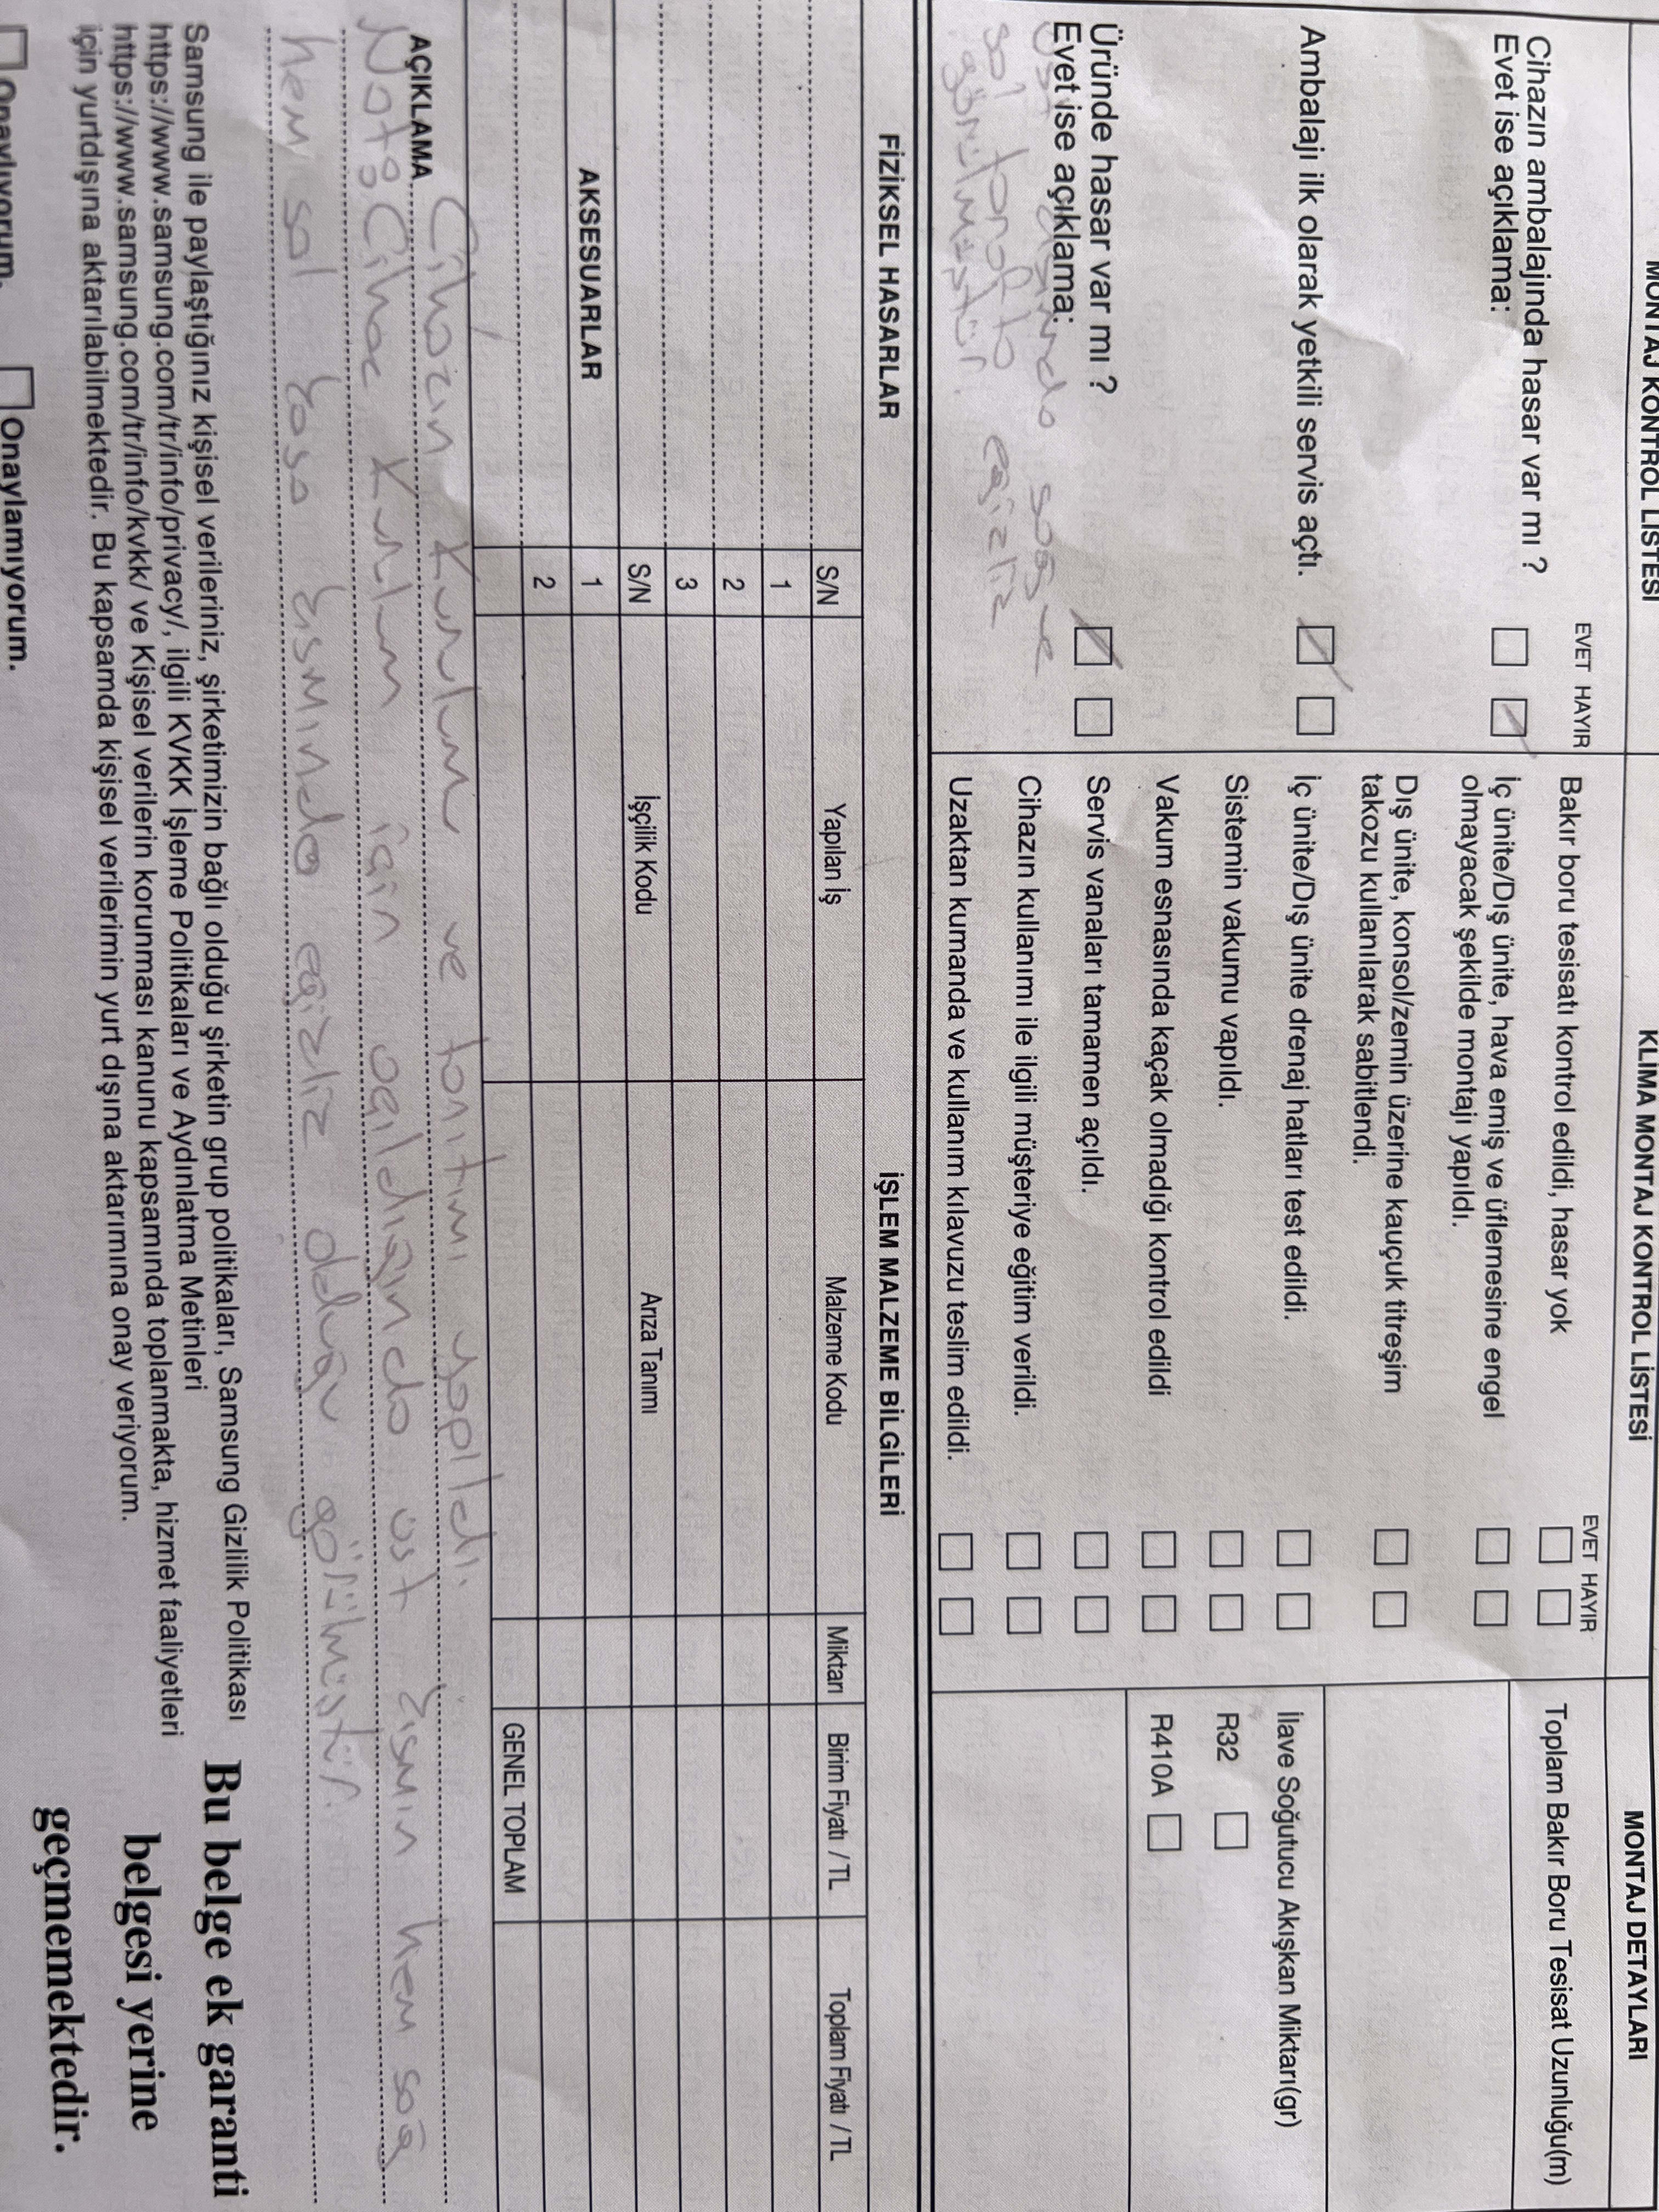 MONTAJ KONTROL LİSTESİ
EVET HAYIR
Cihazın ambalajında hasar var mı ?
Evet ise açıklama:
Ambalajı ilk olarak yetkili servis açtı.
Üründe hasar var mı ?
Evet ise açıklama:
Üst kısmında sağ ve
sol tarafta çeğizliz
görülmüştür.
KLİMA MONTAJ KONTROL LİSTESİ
EVET HAYIR
Bakır boru tesisatı kontrol edildi, hasar yok
İç ünite/Dış ünite, hava emiş ve üflemesine engel
olmayacak şekilde montajı yapıldı.
Dış ünite, konsol/zemin üzerine kauçuk titreşim
takozu kullanılarak sabitlendi.
İç ünite/Dış ünite drenaj hatları test edildi.
Sistemin vakumu yapıldı.
Vakum esnasında kaçak olmadığı kontrol edildi
Servis vanaları tamamen açıldı.
Cihazın kullanımı ile ilgili müşteriye eğitim verildi.
Uzaktan kumanda ve kullanım kılavuzu teslim edildi.
MONTAJ DETAYLARI
Toplam Bakır Boru Tesisat Uzunluğu(m)
İlave Soğutucu Akışkan Miktarı(gr)
R32
R410A
FİZİKSEL HASARLAR
AKSESUARLAR
İŞLEM MALZEME BİLGİLERİ
S/N Yapılan İş Malzeme Kodu Miktarı Birim Fiyatı / TL Toplam Fiyatı / TL
1
2
3
S/N İşçilik Kodu Arıza Tanımı
1
2
GENEL TOPLAM
AÇIKLAMA Cihazın Kurulum ve tanıtımı yapıldı.
Not: Cihaz Kurulum için açıldığında üst kısmın hem sağ
hem sol kısmında olduğu görülmüştür.
Samsung ile paylaştığınız kişisel verileriniz, şirketimizin bağlı olduğu şirketin grup politikaları, Samsung Gizlilik Politikası
https://www.samsung.com/tr/info/privacy/, ilgili KVKK İşleme Politikaları ve Aydınlatma Metinleri
https://www.samsung.com/tr/info/kvkk/ ve Kişisel verilerin korunması kanunu kapsamında toplanmakta, hizmet faaliyetleri
için yurtdışına aktarılabilmektedir. Bu kapsamda kişisel verilerimin yurt dışına aktarımına onay veriyorum.
Onaylıyorum. Onaylamıyorum.
Bu belge ek garanti
belgesi yerine
geçmemektedir.